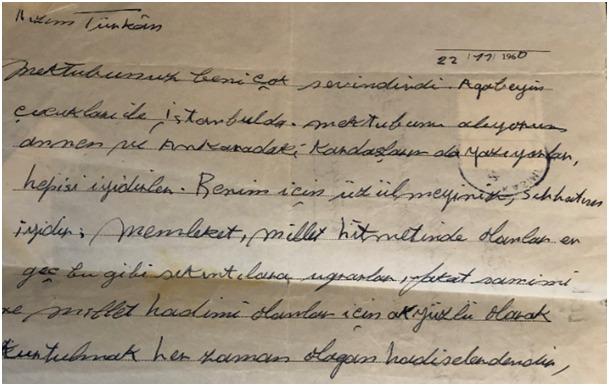 Kızım Türkân
22/11/1960
Mektubunuz beni çok sevindirdi. Ağabeyin
çocukları ile İstanbulda. mektubunu alıyorum
annen ve Ankaradaki Kardaşların da yazıyorlar,
hepisi iyidirler. Benim için üzülmeyiniz, sıhhatım
iyidir; memleket, millet hitmetinde olanlar er
geç bu gibi sıkıntılara uğrarlar, fakat samimi
ve millet hadimi olanlar için akyüzlü olarak
kurtulmak her zaman olağan hadiselerdendir,